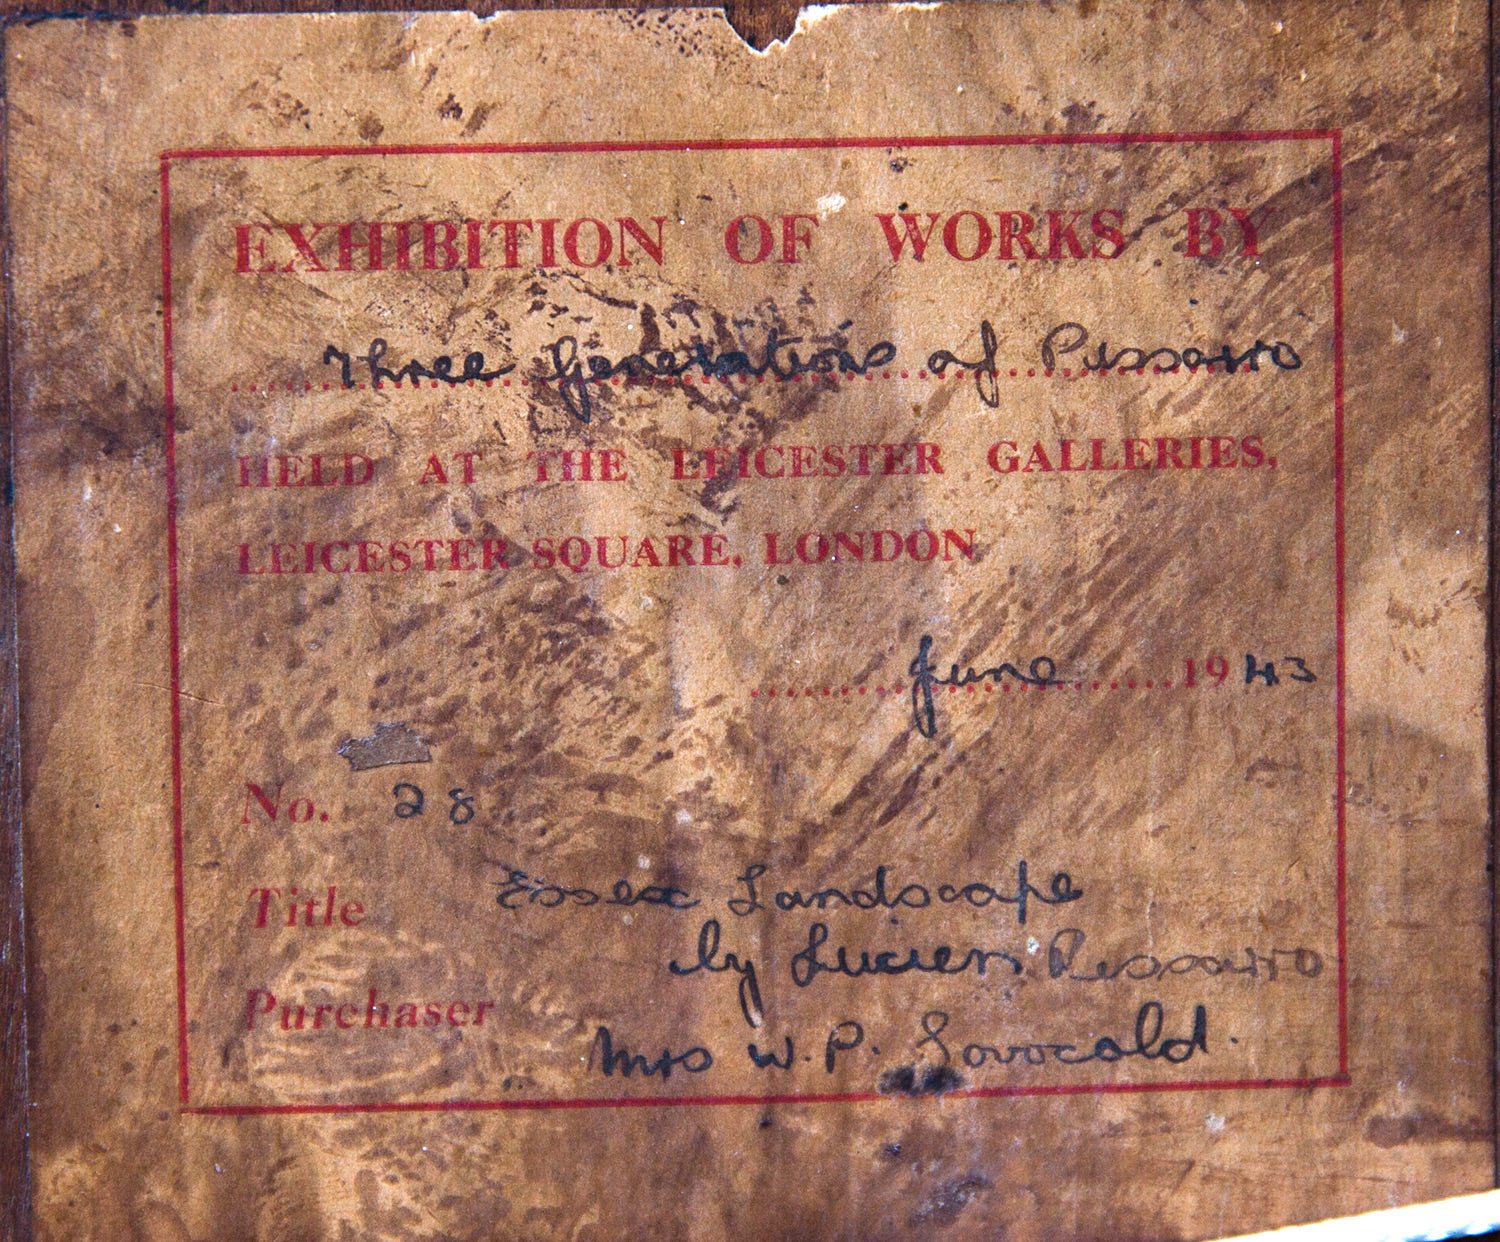 EXHIBITION OF WORKS BY
Three Generations of Pissarro
HELD AT THE LEICESTER GALLERIES,
LEICESTER SQUARE, LONDON
June 1943
No. 28
Title Essex Landscape
by Lucien Pissarro
Purchaser
Mrs W. P.